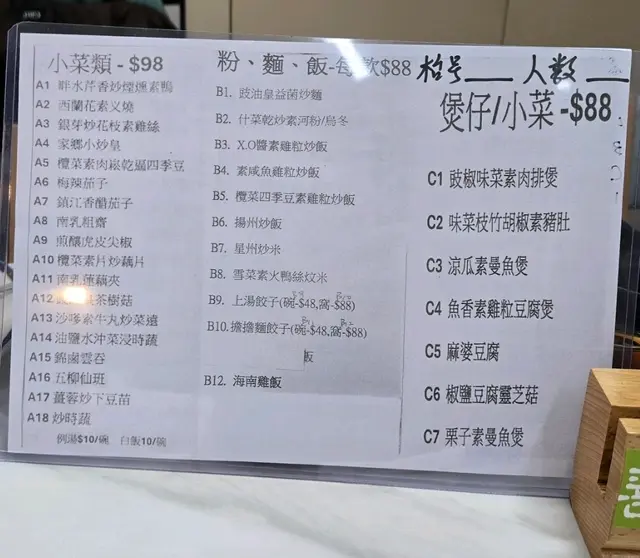 小菜類 - $98
A1 畔水芹香炒煙燻素鴨
A2 西蘭花素义燒
A3 銀芽炒花枝素雞絲
A4 家鄉小炒皇
A5 欖菜素肉崧乾逼四季豆
A6 梅辣茄子
A7 鎮江香醋茄子
A8 南乳粗齋
A9 煎釀虎皮尖椒
A10 欖菜素片炒藕片
A11 南乳蓮藕夾
A12 茶樹菇
A13 沙嗲素牛丸炒菜遠
A14 油鹽水沖菜浸時蔬
A15 錦鹵雲吞
A16 五柳仙班
A17 薑蓉炒下豆苗
A18 炒時蔬
例湯$10/碗 白飯10/碗
粉、麵、飯-每款$88
B1. 豉油皇益菌炒麵
B2. 什菜乾炒素河粉/烏冬
B3. X.O醬素雞粒炒飯
B4. 素咸魚雞粒炒飯
B5. 欖菜四季豆素雞粒炒飯
B6. 揚州炒飯
B7. 星州炒米
B8. 雪菜素火鴨絲炆米
B9. 上湯餃子(碗-$48,窩-$88)
B10. 擔擔麵餃子(碗-$48,窩-$88)
飯
B12. 海南雞飯
枱号___ 人数___
煲仔/小菜 -$88
C1 豉椒味菜素肉排煲
C2 味菜枝竹胡椒素豬肚
C3 涼瓜素曼魚煲
C4 魚香素雞粒豆腐煲
C5 麻婆豆腐
C6 椒鹽豆腐靈芝菇
C7 栗子素曼魚煲